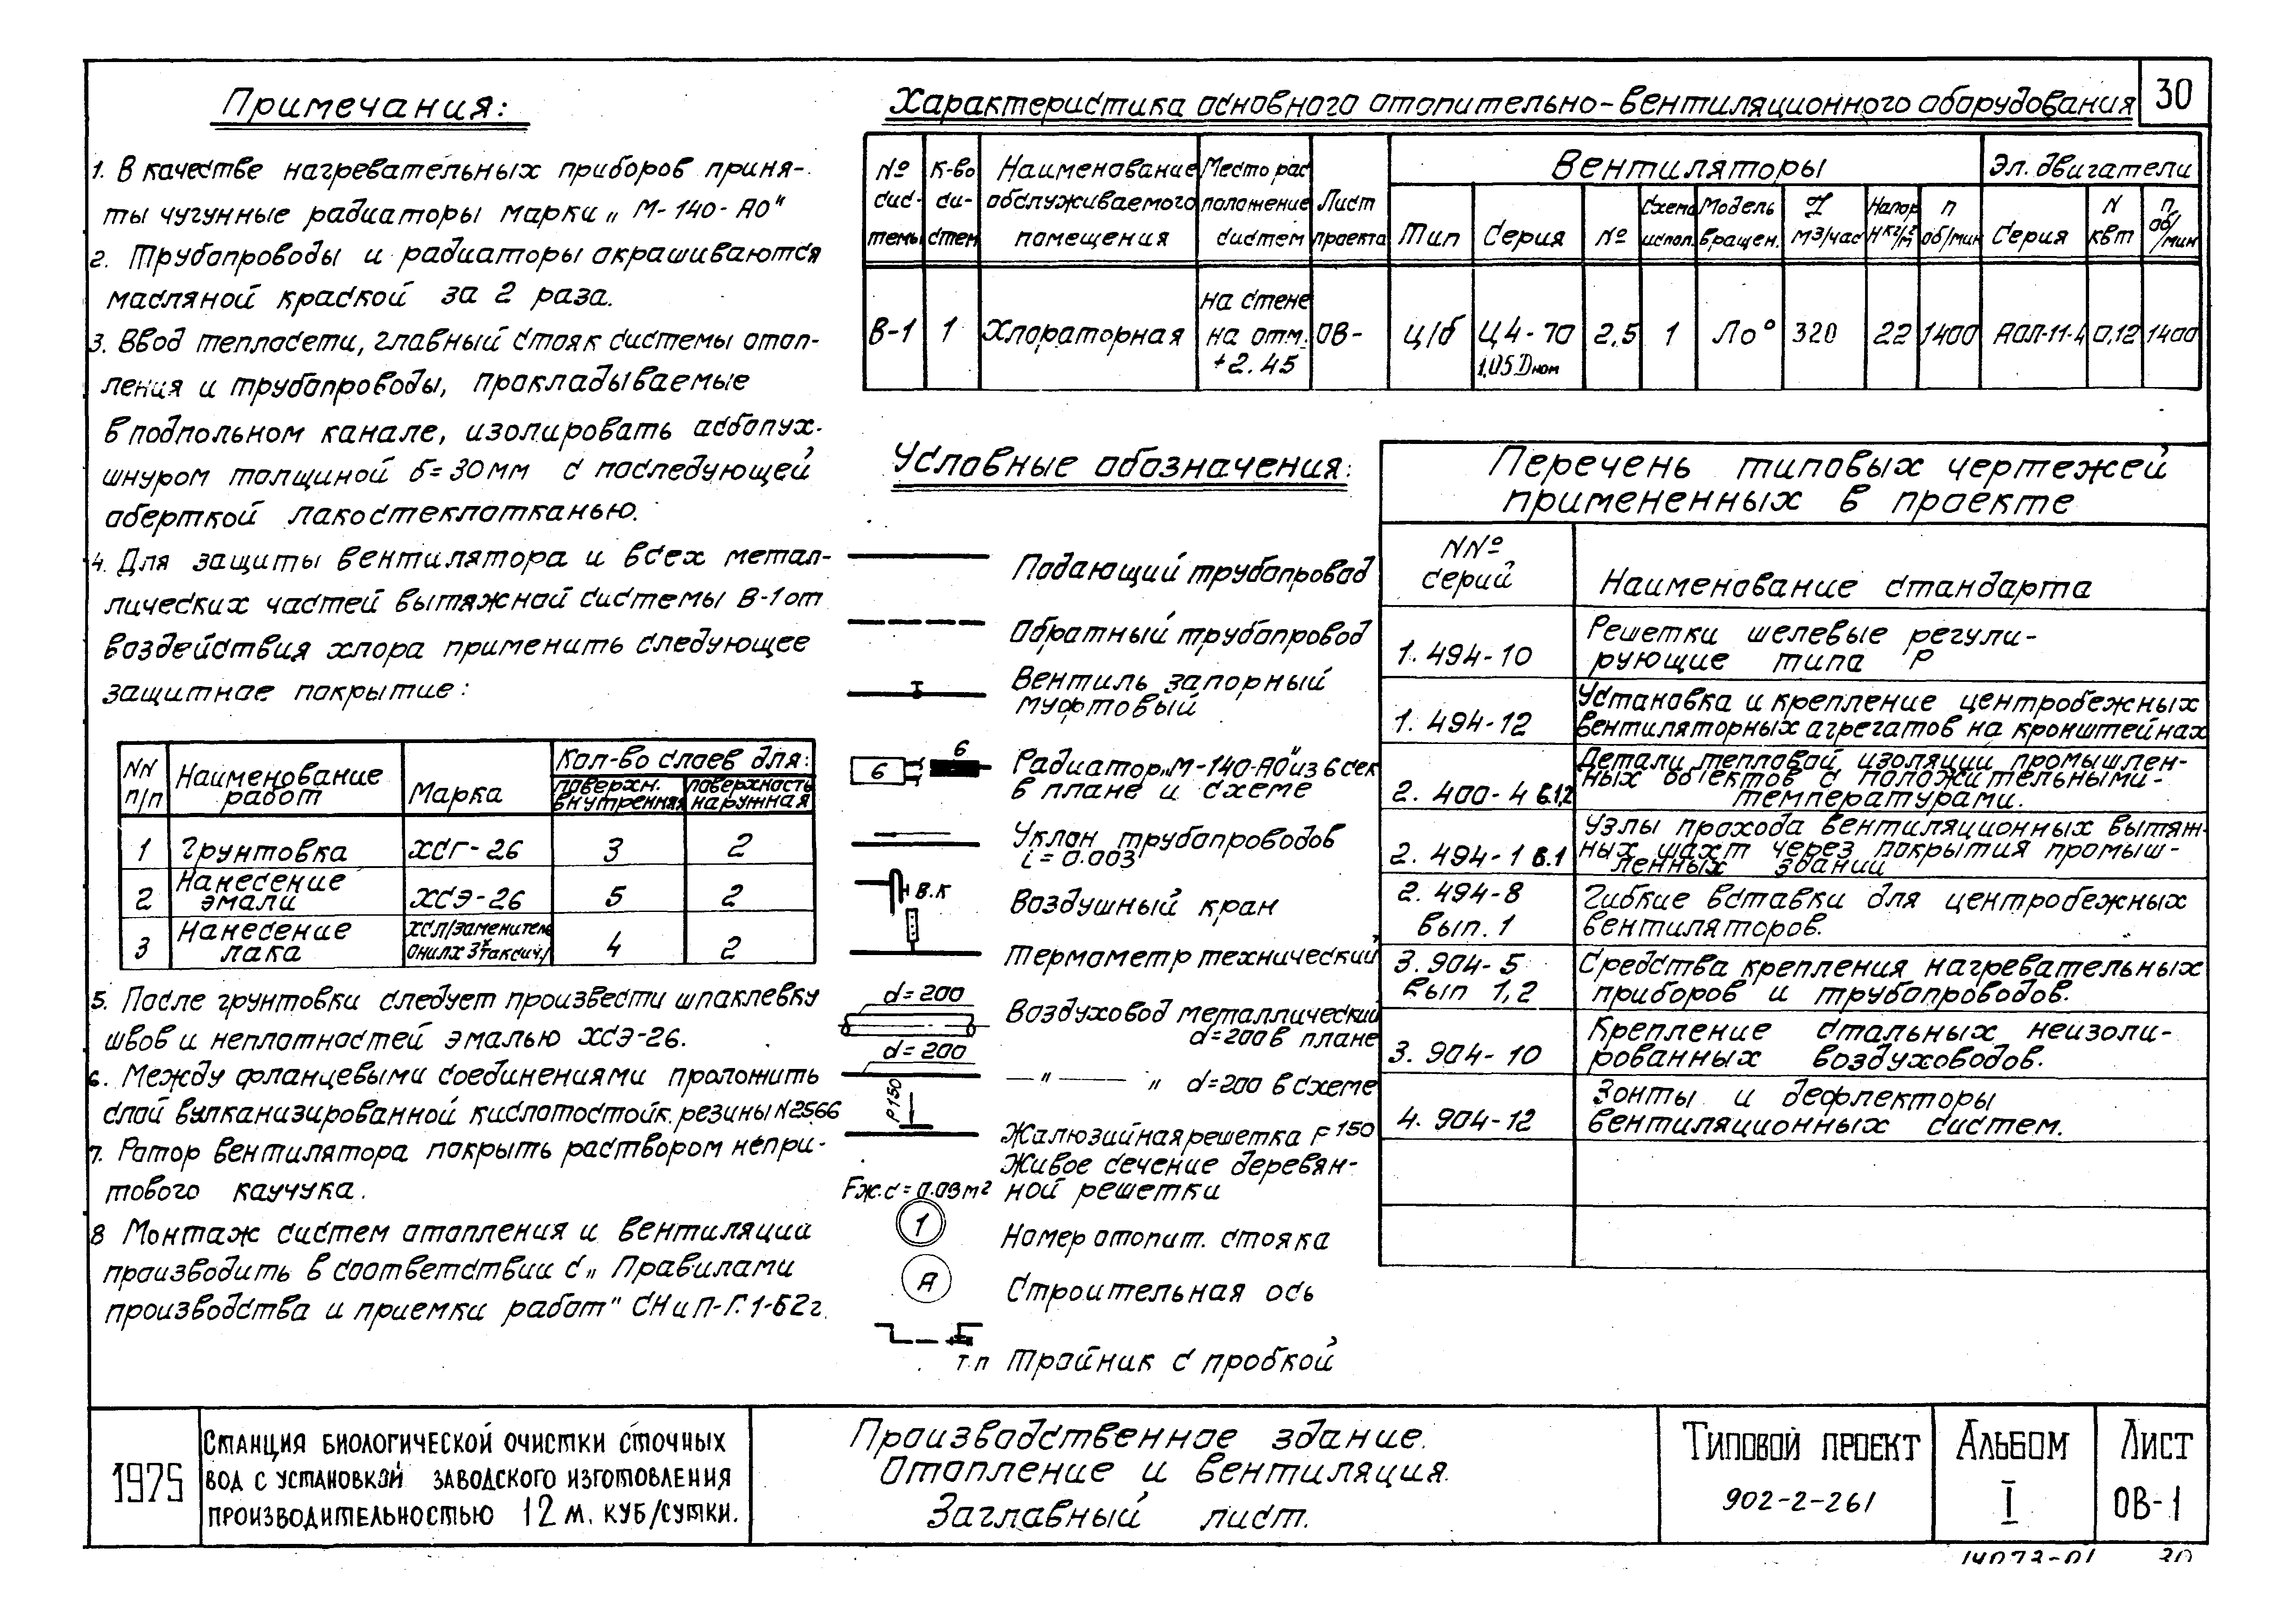 30
Примечания:
1. В качестве нагревательных приборов приня-
ты чугунные радиаторы марки „М-140-АО"
2. Трубопроводы и радиаторы окрашиваются
масляной краской за 2 раза.
3. Ввод теплосети, главный стояк системы отоп-
ления и трубопроводы, прокладываемые
в подпольном канале, изолировать асбопух.
шнуром толщиной δ=30мм с последующей
оберткой лакостеклотканью.
4. Для защиты вентилятора и всех метал-
лических частей вытяжной системы В-1 от
воздействия хлора применить следующее
защитное покрытие:
NN п/п
Наименование работ
Марка
Кол-во слоев для:
поверхн. внутренняя
поверхность наружная
1 Грунтовка ХСГ-26 3 2
2 Нанесение эмали ХСЭ-26 5 2
3 Нанесение лака ХСЛ/заменитель 4 2
5. После грунтовки следует произвести шпаклевку
швов и неплотностей эмалью ХСЭ-26.
6. Между фланцевыми соединениями проложить
слой вулканизированной кислотостойк. резины N2566
7. Ротор вентилятора покрыть раствором непри-
тового каучука.
8 Монтаж систем отопления и вентиляции
производить в соответствии с „Правилами
производства и приемки работ" СНиП-Г.1-62г.
Характеристика основного отопительно-вентиляционного оборудования
№ сис-темы
К-во си-стем
Наименование обслуживаемого помещения
Место рас положение систем
Лист проекта
Вентиляторы
Эл. двигатели
Тип
Серия
№
Схема испол.
Модель вращен.
м3/час
Напор Н кг/м²
п об/мин
Серия
N квт
п об/мин
В-1 1 Хлораторная на стене на отм. +2.45 ОВ- ц/б Ц4-70 1,05 Dном 2,5 1 Ло° 320 22 1400 АОЛ-11-4 0,12 1400
Условные обозначения:
Подающий трубопровод
Обратный трубопровод
Вентиль запорный
муфтовый
6
6
Радиатор „М-140-АО" из 6 сек
в плане и схеме
Уклон трубопроводов
i=0.003
В.К
Воздушный кран
Термометр технический
d=200
Воздуховод металлический
d=200 в плане
d=200
—"— " d=200 в схеме
Р150
Жалюзийная решетка Р150
Живое сечение деревян-
Fж.с=0.03м² ной решетки
1
Номер отопит. стояка
А
Строительная ось
т.п
Тройник с пробкой
Перечень типовых чертежей
примененных в проекте
NN° серий
Наименование стандарта
1.494-10
Решетки щелевые регули-
рующие типа Р
1.494-12
Установка и крепление центробежных
вентиляторных агрегатов на кронштейнах
2.400-4 в.1,2
Детали тепловой изоляции промышлен-
ных объектов с положительными-
температурами.
2.494-1 в.1
Узлы прохода вентиляционных вытяж-
ных шахт через покрытия промыш-
ленных зданий
2.494-8
вып. 1
Гибкие вставки для центробежных
вентиляторов.
3.904-5
вып 1,2
Средства крепления нагревательных
приборов и трубопроводов.
3.904-10
Крепление стальных неизоли-
рованных воздуховодов.
4.904-12
Зонты и дефлекторы
вентиляционных систем.
1975
Станция биологической очистки сточных
вод с установкой заводского изготовления
производительностью 12 м. куб/сутки.
Производственное здание.
Отопление и вентиляция.
Заглавный лист.
Типовой проект
902-2-261
Альбом
I
Лист
ОВ-1
14073-01 30